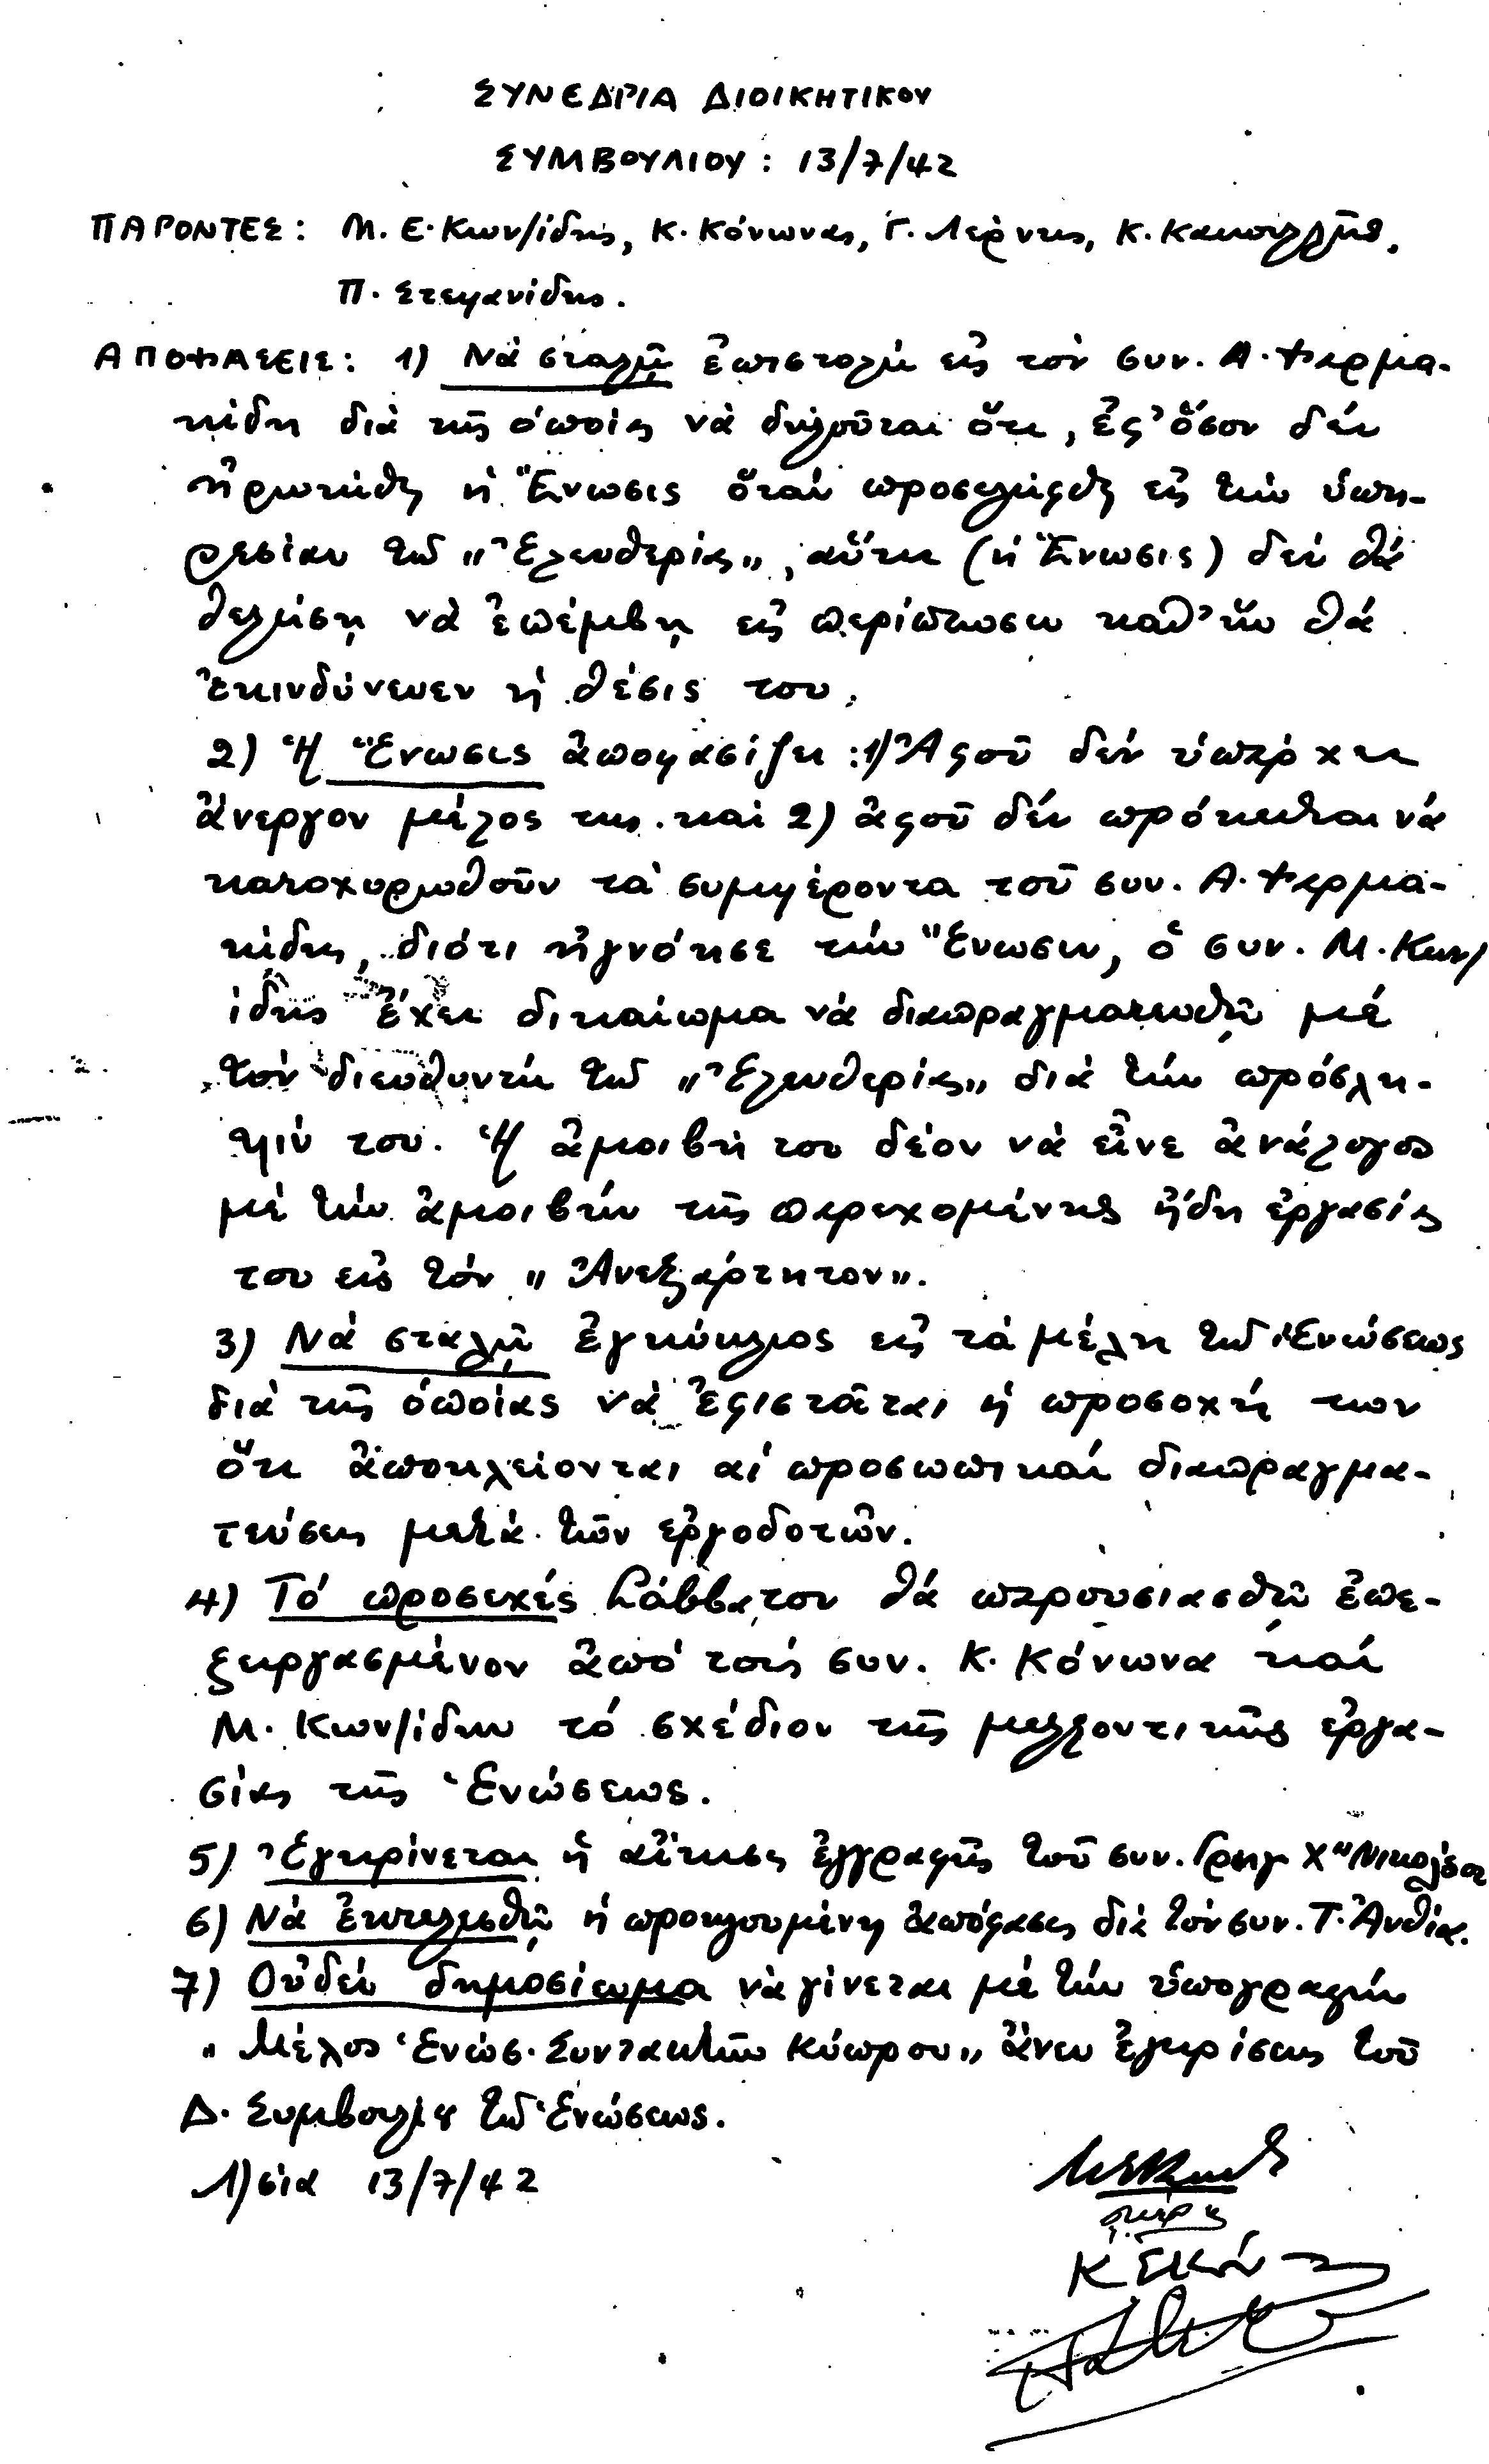 ΣΥΝΕΔΡΙΑ ΔΙΟΙΚΗΤΙΚΟΥ
ΣΥΜΒΟΥΛΙΟΥ: 13/7/42
ΠΑΡΟΝΤΕΣ: Μ. Ε. Κων/ίδης, Κ. Κόνωνας, Γ. Λέρντης, Κ.
Π. Στεφανίδης.
ΑΠΟΦΑΣΕΙΣ: 1) Νὰ σταλῇ ἐπιστολὴ εἰς τὸν συν. Α. Φαρμα-
κίδη διὰ τῆς ὁποίας νὰ δηλοῦται ὅτι, ἐφ' ὅσον δὲν
ἠρωτήθη ἡ Ἕνωσις ὅταν προσελήφθη εἰς τὴν ὑπη-
ρεσίαν τῆς „Ἐλευθερίας„, αὕτη (ἡ Ἕνωσις) δὲν θὰ
θελήσῃ νὰ ἐπέμβῃ εἰς περίπτωσιν καθ' ἣν θὰ
ἐκινδύνευεν ἡ θέσις του.
2) Ἡ Ἕνωσις ἀποφασίζει: 1) Ἀφοῦ δὲν ὑπάρχει
ἄνεργον μέλος της καὶ 2) ἀφοῦ δὲν πρόκειται νὰ
κατοχυρωθοῦν τὰ συμφέροντα τοῦ συν. Α. Φαρμα-
κίδη, διότι ἠγνόησε τὴν Ἕνωσιν, ὁ συν. Μ. Κων/
ίδης ἔχει δικαίωμα νὰ διαπραγματευθῇ μὲ
τὸν διευθυντὴν τῆς „Ἐλευθερίας„ διὰ τὴν πρόσλη-
ψίν του. Ἡ ἀμοιβή του δέον νὰ εἶνε ἀνάλογος
μὲ τὴν ἀμοιβὴν τῆς παρεχομένης ἤδη ἐργασίας
του εἰς τὸν „Ἀνεξάρτητον„.
3) Νὰ σταλῇ ἐγκύκλιος εἰς τὰ μέλη τῆς Ἑνώσεως
διὰ τῆς ὁποίας νὰ ἐφιστᾶται ἡ προσοχή των
ὅτι ἀποκλείονται αἱ προσωπικαὶ διαπραγμα-
τεύσεις μετὰ τῶν ἐργοδοτῶν.
4) Τὸ προσεχὲς Σάββατον θὰ παρουσιασθῇ ἐπε-
ξειργασμένον ἀπὸ τοὺς συν. Κ. Κόνωνα καὶ
Μ. Κων/ίδην τὸ σχέδιον τῆς μελλοντικῆς ἐργα-
σίας τῆς Ἑνώσεως.
5) Ἐγκρίνεται ἡ αἴτησις ἐγγραφῆς τοῦ συν. Γρηγ. Χ" Νικολάου
6) Νὰ ἐκτελεσθῇ ἡ προηγουμένη ἀπόφασις διὰ τὸν συν. Τ. Ἀνθία.
7) Οὐδὲν δημοσίευμα νὰ γίνεται μὲ τὴν ὑπογραφὴν
„Μέλος Ἑνώσ. Συντακτῶν Κύπρου„ ἄνευ ἐγκρίσεως τοῦ
Δ. Συμβουλίου τῆς Ἑνώσεως.
Λ)σία 13/7/42